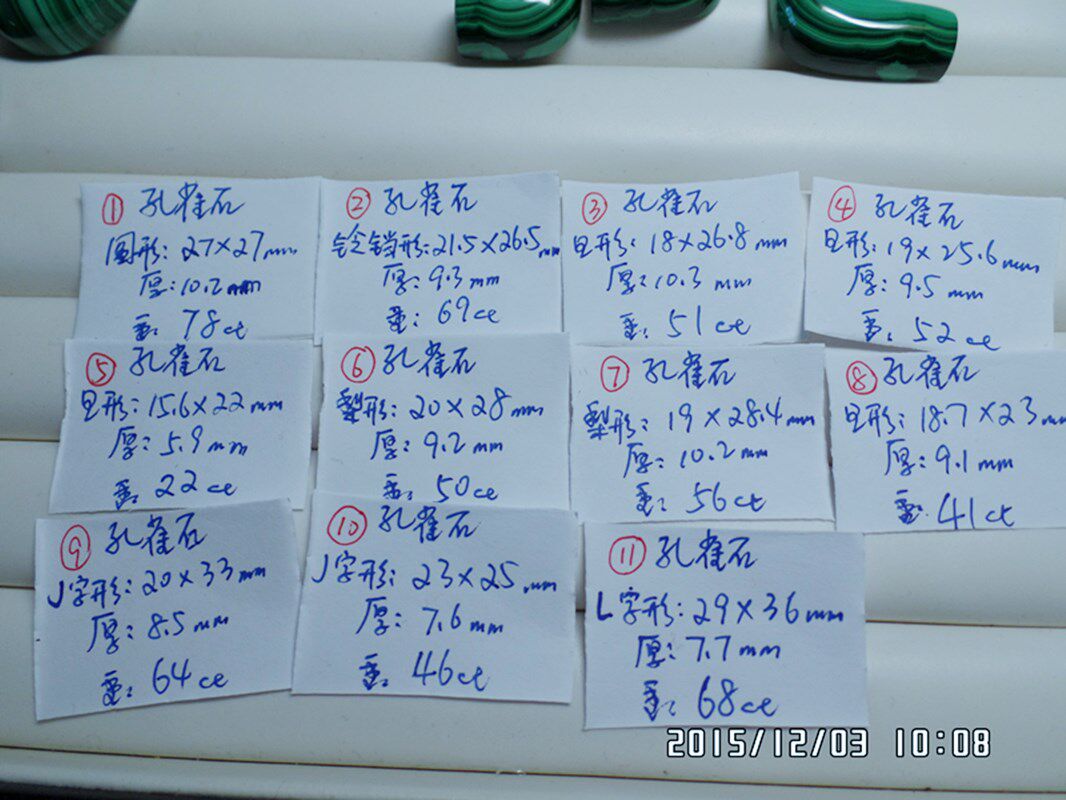 ① 孔雀石
圆形: 27×27mm
厚: 10.2mm
重: 78ct
② 孔雀石
铃铛形: 21.5×26.5mm
厚: 9.3mm
重: 69ct
③ 孔雀石
旦形: 18×26.8mm
厚: 10.3mm
重: 51ct
④ 孔雀石
旦形: 19×25.6mm
厚: 9.5mm
重: 52ct
⑤ 孔雀石
旦形: 15.6×22mm
厚: 5.9mm
重: 22ct
⑥ 孔雀石
梨形: 20×28mm
厚: 9.2mm
重: 50ct
⑦ 孔雀石
梨形: 19×28.4mm
厚: 10.2mm
重: 56ct
⑧ 孔雀石
旦形: 18.7×23mm
厚: 9.1mm
重: 41ct
⑨ 孔雀石
J字形: 20×33mm
厚: 8.5mm
重: 64ct
⑩ 孔雀石
J字形: 23×25mm
厚: 7.6mm
重: 46ct
⑪ 孔雀石
L字形: 29×36mm
厚: 7.7mm
重: 68ct
2015/12/03 10:08